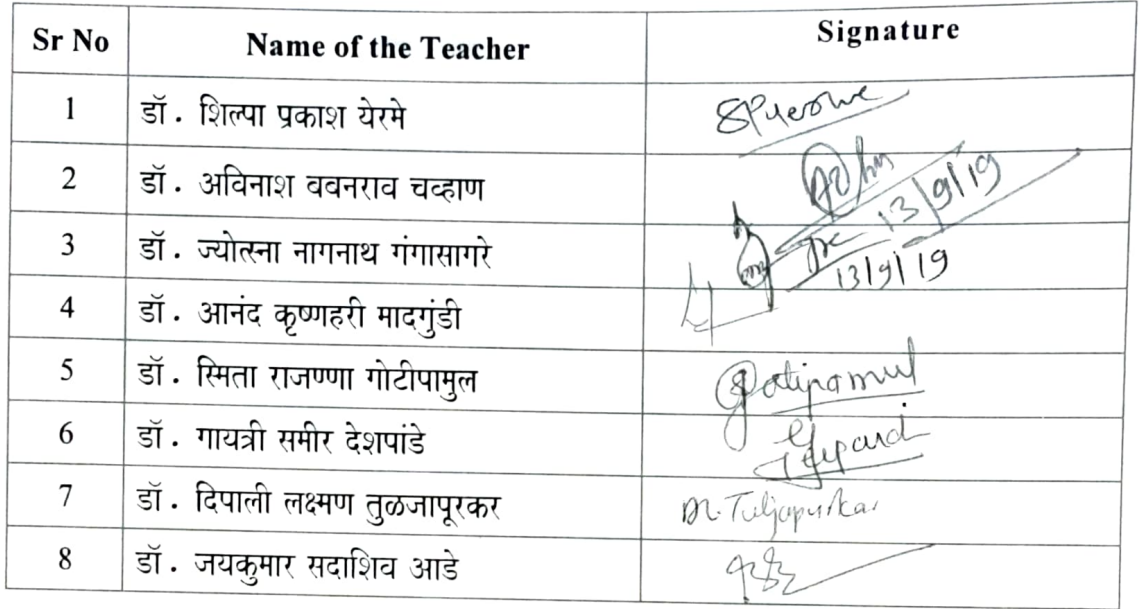 Sr No Name of the Teacher Signature
1 डॉ. शिल्पा प्रकाश येरमे SPyerme
2 डॉ. अविनाश बबनराव चव्हाण 13/9/19
3 डॉ. ज्योत्स्ना नागनाथ गंगासागरे 13/9/19
4 डॉ. आनंद कृष्णहरी मादगुंडी
5 डॉ. स्मिता राजण्णा गोटीपामुल Gotipamul
6 डॉ. गायत्री समीर देशपांडे
7 डॉ. दिपाली लक्ष्मण तुळजापूरकर Dr. Tuljapurkar
8 डॉ. जयकुमार सदाशिव आडे